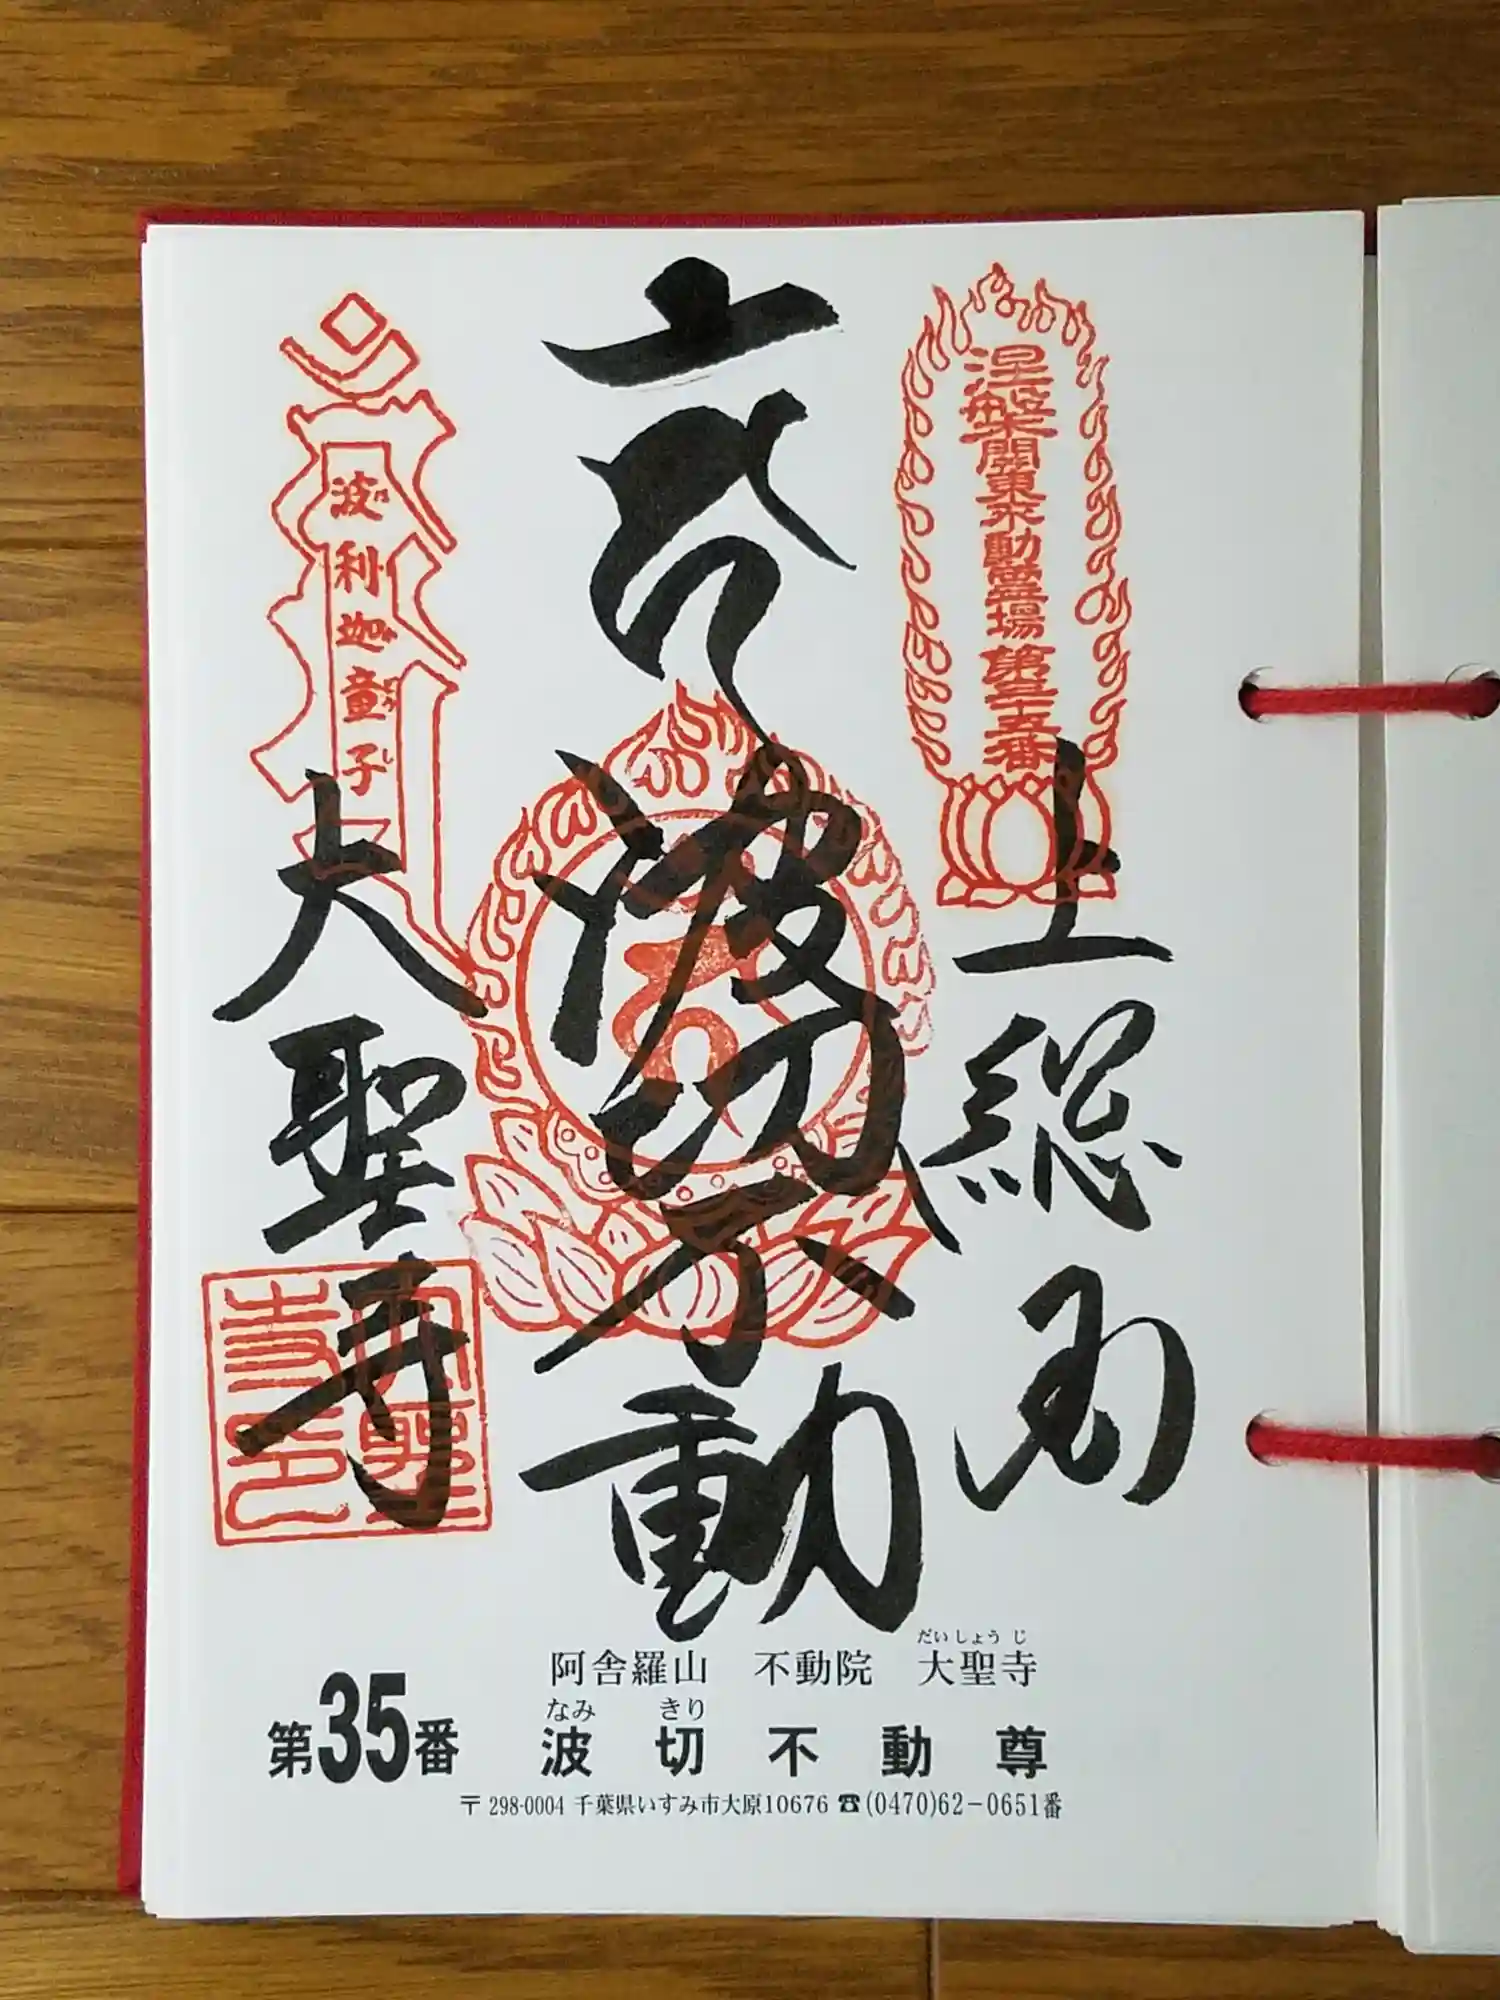 涅槃関東不動霊場第三十五番
上総国
波切不動
波利迦童子
大聖寺
大聖寺印
だいしょうじ
阿舎羅山 不動院 大聖寺
なみ きり
第35番 波切不動尊
〒298-0004 千葉県いすみ市大原10676 ☎(0470)62-0651番